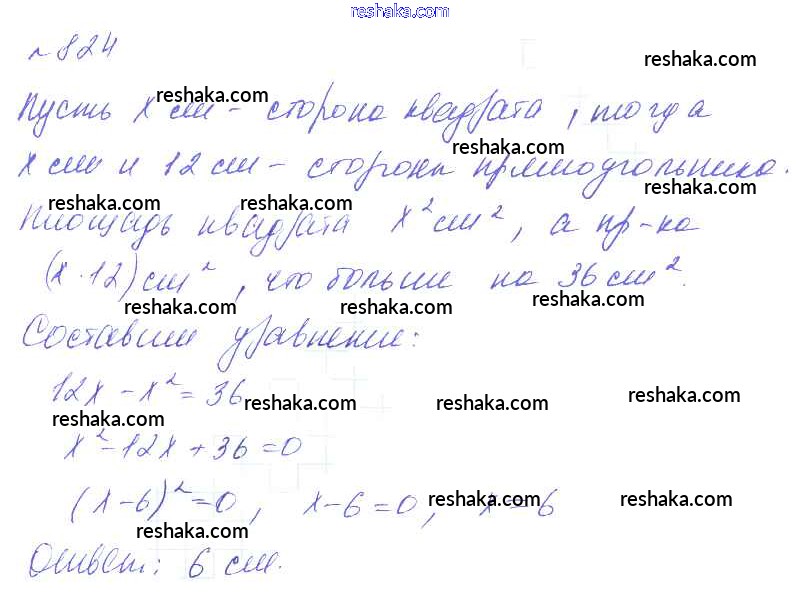 reshaka.com
№824
reshaka.com
Пусть x см - сторона квадрата, тогда
reshaka.com
reshaka.com
x см и 12 см - стороны прямоугольника.
reshaka.com
reshaka.com reshaka.com
Площадь квадрата x² см², а пр-ка
(x·12) см², что больше на 36 см².
reshaka.com reshaka.com reshaka.com
Составим уравнение:
12x - x² = 36
reshaka.com reshaka.com reshaka.com
reshaka.com
x² - 12x + 36 = 0
(x-6)² = 0, x-6=0, x=6
reshaka.com reshaka.com
reshaka.com
Ответ: 6 см.